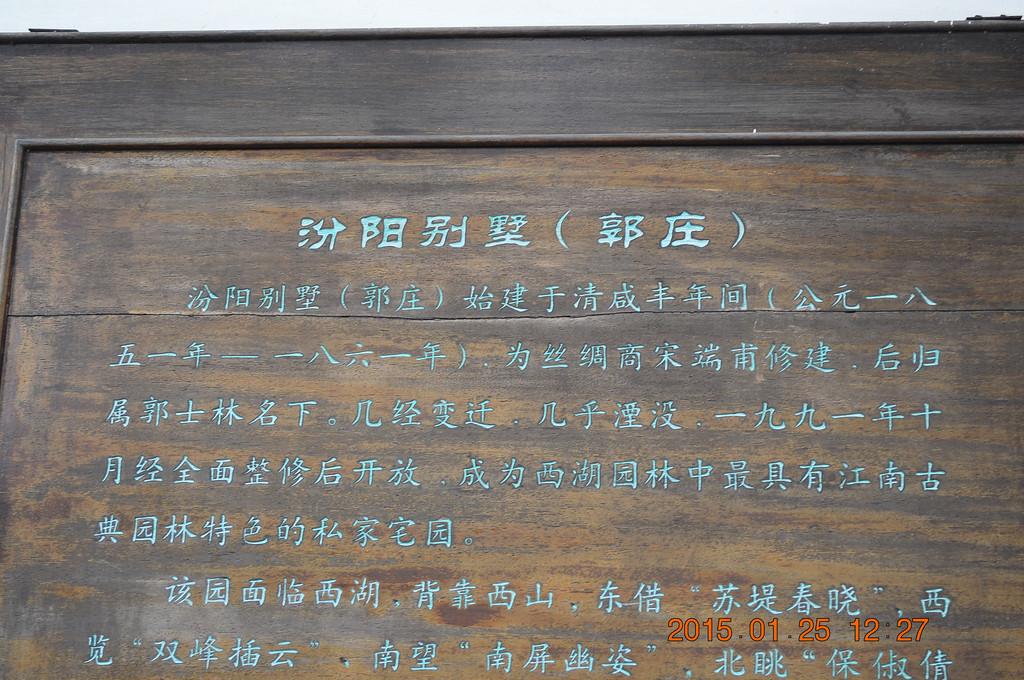 汾阳别墅（郭庄）
汾阳别墅（郭庄）始建于清咸丰年间（公元一八
五一年—一八六一年），为丝绸商宋端甫修建，后归
属郭士林名下。几经变迁，几乎湮没，一九九一年十
月经全面整修后开放，成为西湖园林中最具有江南古
典园林特色的私家宅园。
该园面临西湖，背靠西山，东借“苏堤春晓”，西
览“双峰插云”、南望“南屏幽姿”，北眺“保俶倩
2015.01.25 12:27